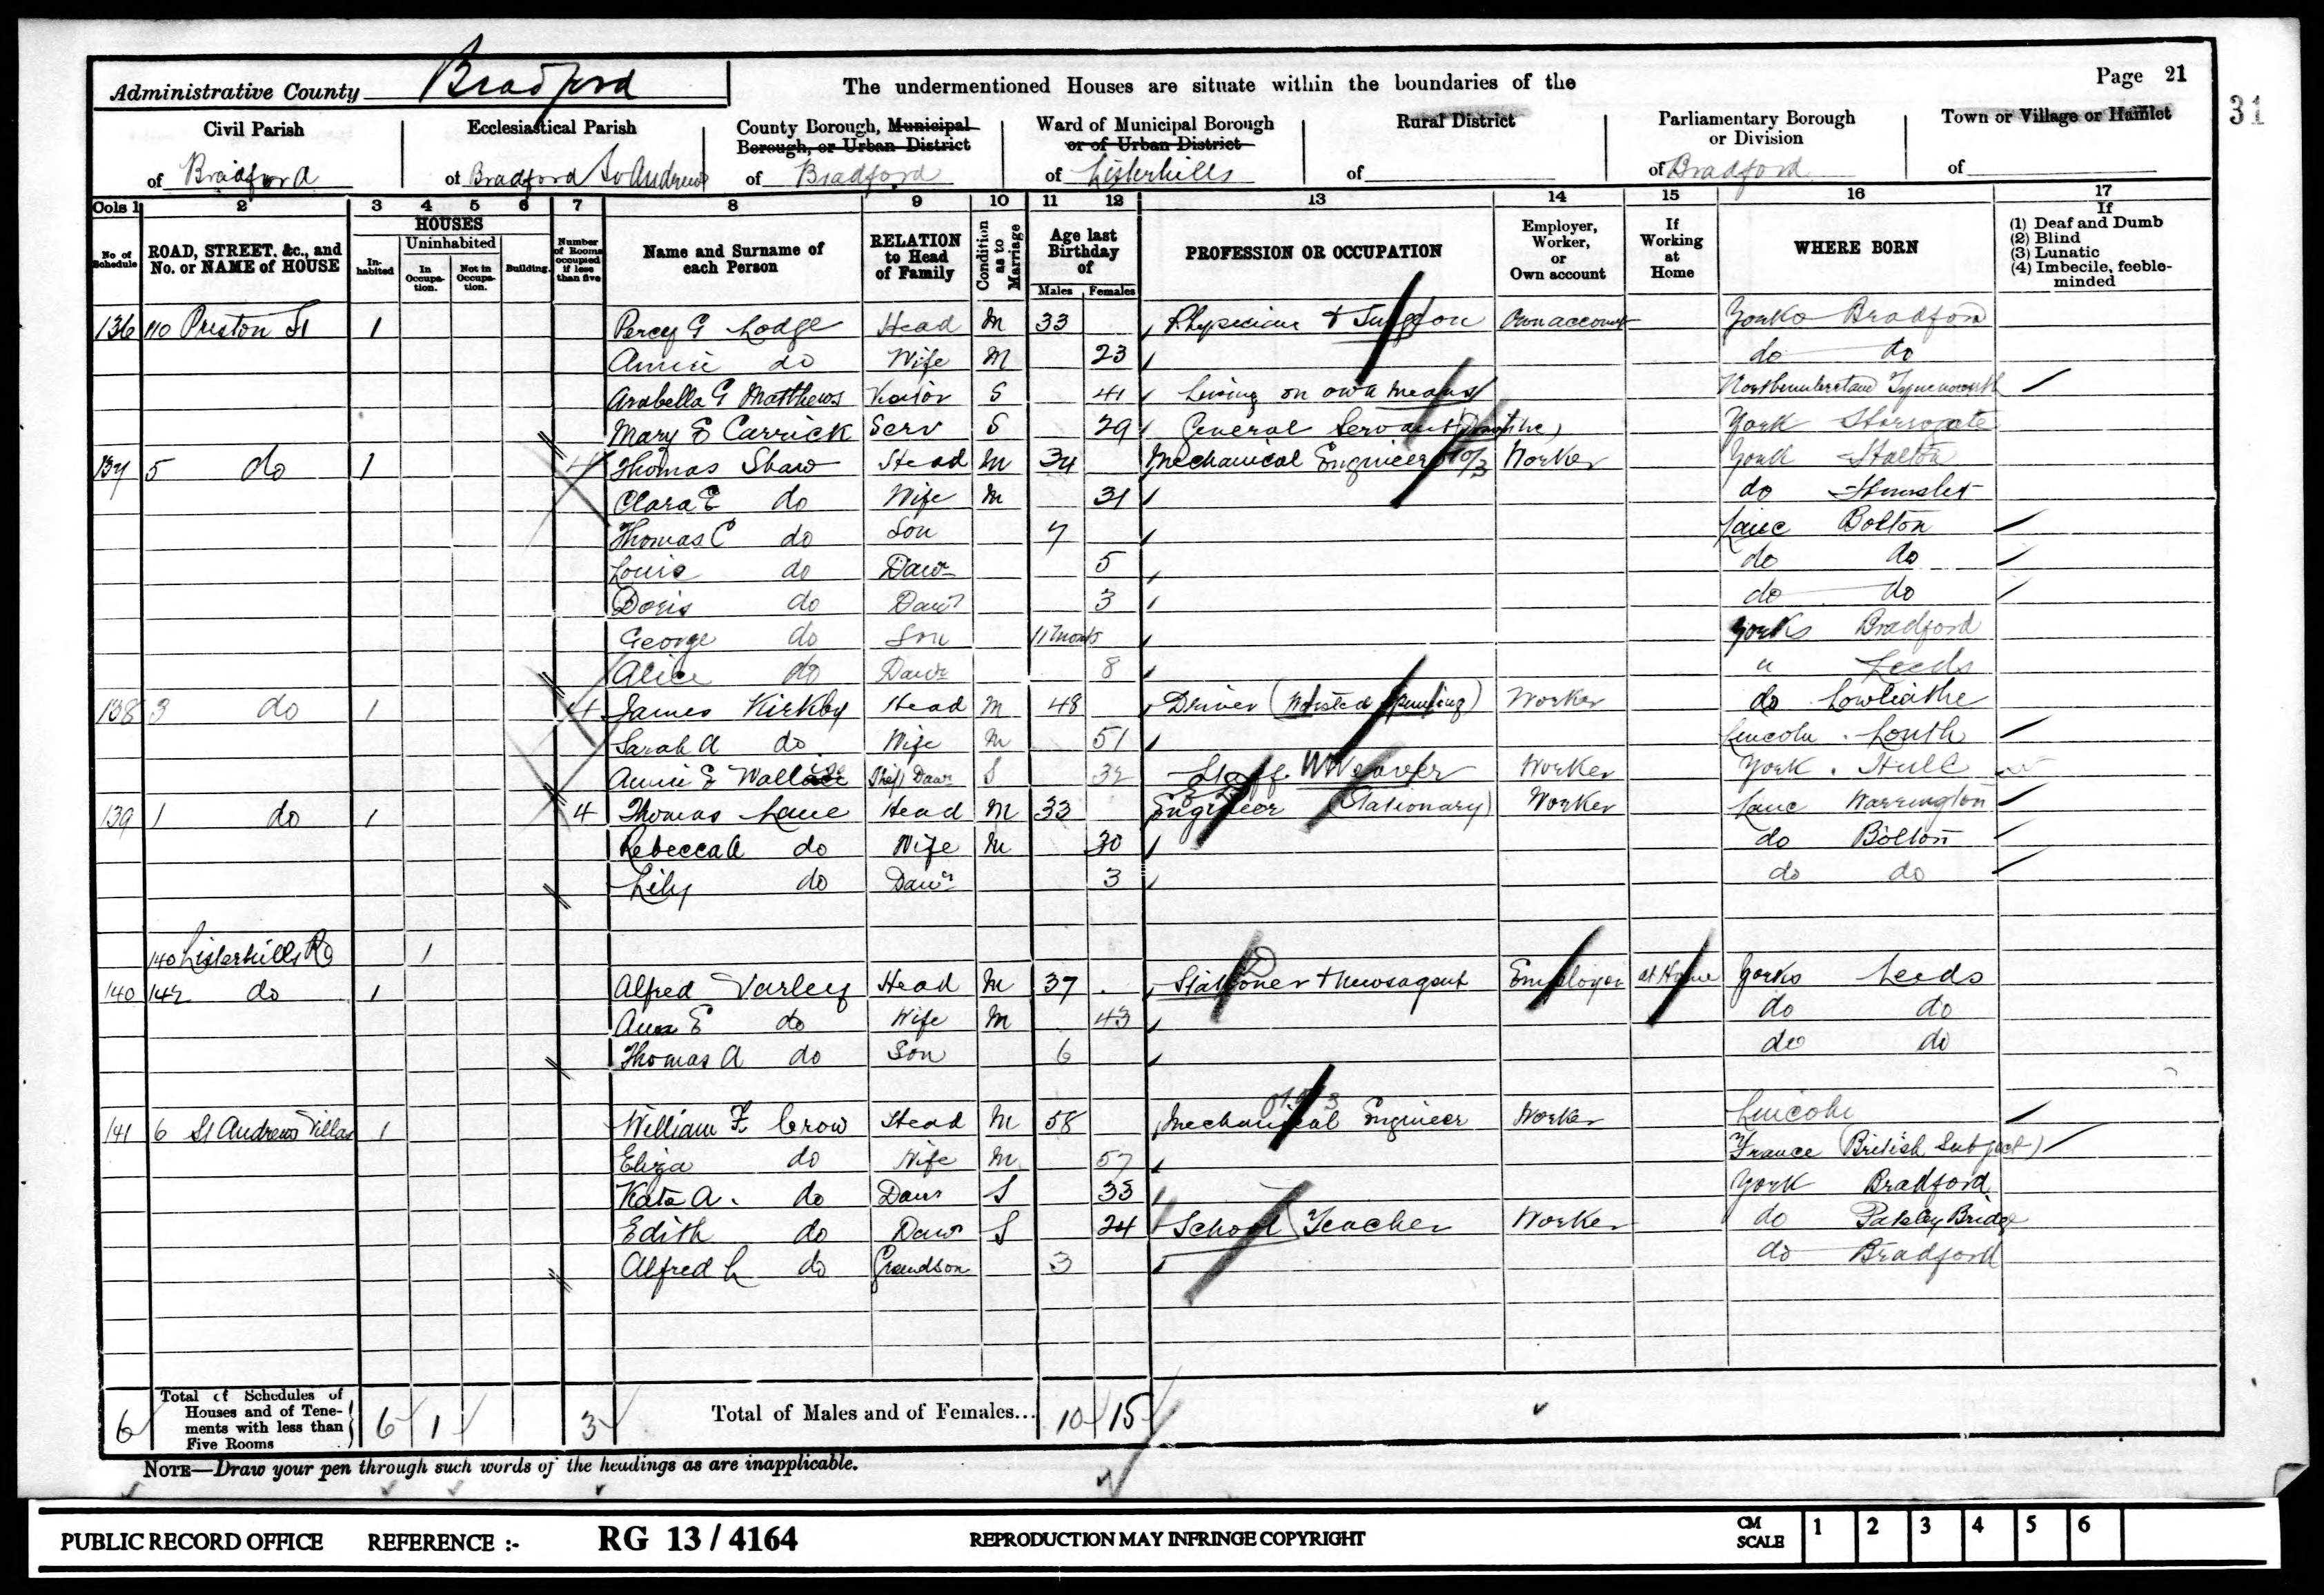 Administrative County Bradford
The undermentioned Houses are situate within the boundaries of the
Page 21
31
Civil Parish
of Bradford
Ecclesiastical Parish
of Bradford St Andrews
County Borough, Municipal
Borough, or Urban District
of Bradford
Ward of Municipal Borough
or of Urban District
of Listerhills
Rural District
of
Parliamentary Borough
or Division
of Bradford
Town or Village or Hamlet
of
Cols 1 2 3 4 5 6 7 8 9 10 11 12 13 14 15 16 17
No. of Schedule
ROAD, STREET, &c., and No. or NAME of HOUSE
HOUSES
In-habited
Uninhabited
In Occupa-tion.
Not in Occupa-tion.
Building.
Number of Rooms occupied if less than five
Name and Surname of each Person
RELATION to Head of Family
Condition as to Marriage
Age last Birthday of
Males Females
PROFESSION OR OCCUPATION
Employer, Worker, or Own account
If Working at Home
WHERE BORN
If
(1) Deaf and Dumb
(2) Blind
(3) Lunatic
(4) Imbecile, feeble-minded
136 110 Preston St 1 Percy G Lodge Head M 33 Physician & Surgeon Own account Yorks Bradford
Annie do Wife M 23 do do
Arabella G Matthews Visitor S 41 Living on own means Northumberland Tynemouth
Mary E Carrick Serv S 29 General Servant York Harrogate
137 5 do 1 4 Thomas Shaw Head M 34 Mechanical Engineer Worker York Halton
Clara E do Wife M 31 do Hunslet
Thomas C do Son 7 Lanc Bolton
Louis do Daur 5 do do
Doris do Daur 3 do do
George do Son 11 Months Yorks Bradford
Alice do Daur 8 " Leeds
138 3 do 1 4 James Kirkby Head M 48 Driver (Worsted Spinning) Worker do
Sarah A do Wife M 51 Lincoln Louth
Annie E Step Daur S 32 Stuff Weaver Worker York Hull
139 1 do 1 4 Thomas Lane Head M 33 Engineer (Stationary) Worker Lanc Warrington
Rebecca A do Wife M 30 do Bolton
Lily do Daur 3 do do
140 Listerhills Rd 1
140 142 do 1 Alfred Varley Head M 37 Stationer & Newsagent Employer at Home Yorks Leeds
Ann E do Wife M 43 do do
Thomas A do Son 6 do do
141 6 St Andrews Villas 1 William F. Crow Head M 58 Mechanical Engineer Worker Lincoln
Eliza do Wife M 57 France (British Subject)
Kate A. do Daur S 33 York Bradford
Edith do Daur S 24 School Teacher Worker do Pateley Bridge
Alfred L do Grandson 3 do Bradford
6 Total of Schedules of Houses and of Tene-ments with less than Five Rooms 6 1 3 Total of Males and of Females... 10 15
NOTE—Draw your pen through such words of the headings as are inapplicable.
PUBLIC RECORD OFFICE REFERENCE :- RG 13 / 4164 REPRODUCTION MAY INFRINGE COPYRIGHT CM SCALE 1 2 3 4 5 6